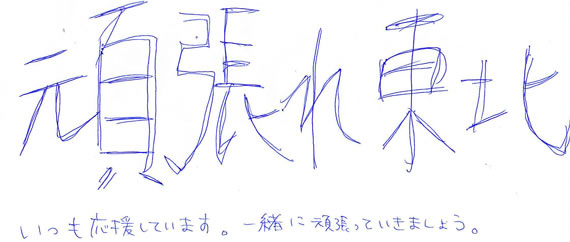 頑張れ東北
いつも応援しています。一緒に頑張っていきましょう。